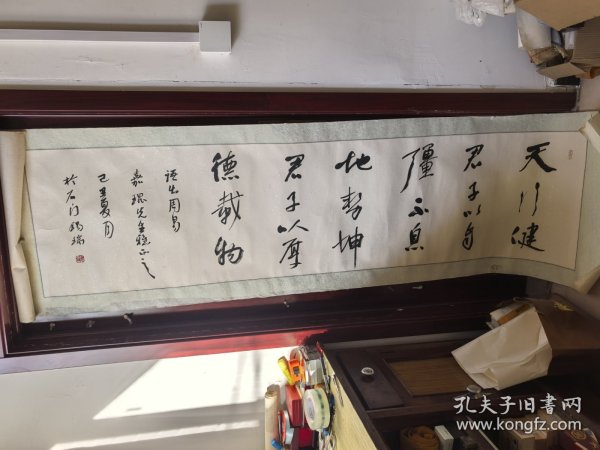 天行健
君子以自
彊不息
地势坤
君子以厚
德载物
语出周易
嘉琨先生 正之
己丑夏月
于石门 瑞
孔夫子旧书网
www.kongfz.com